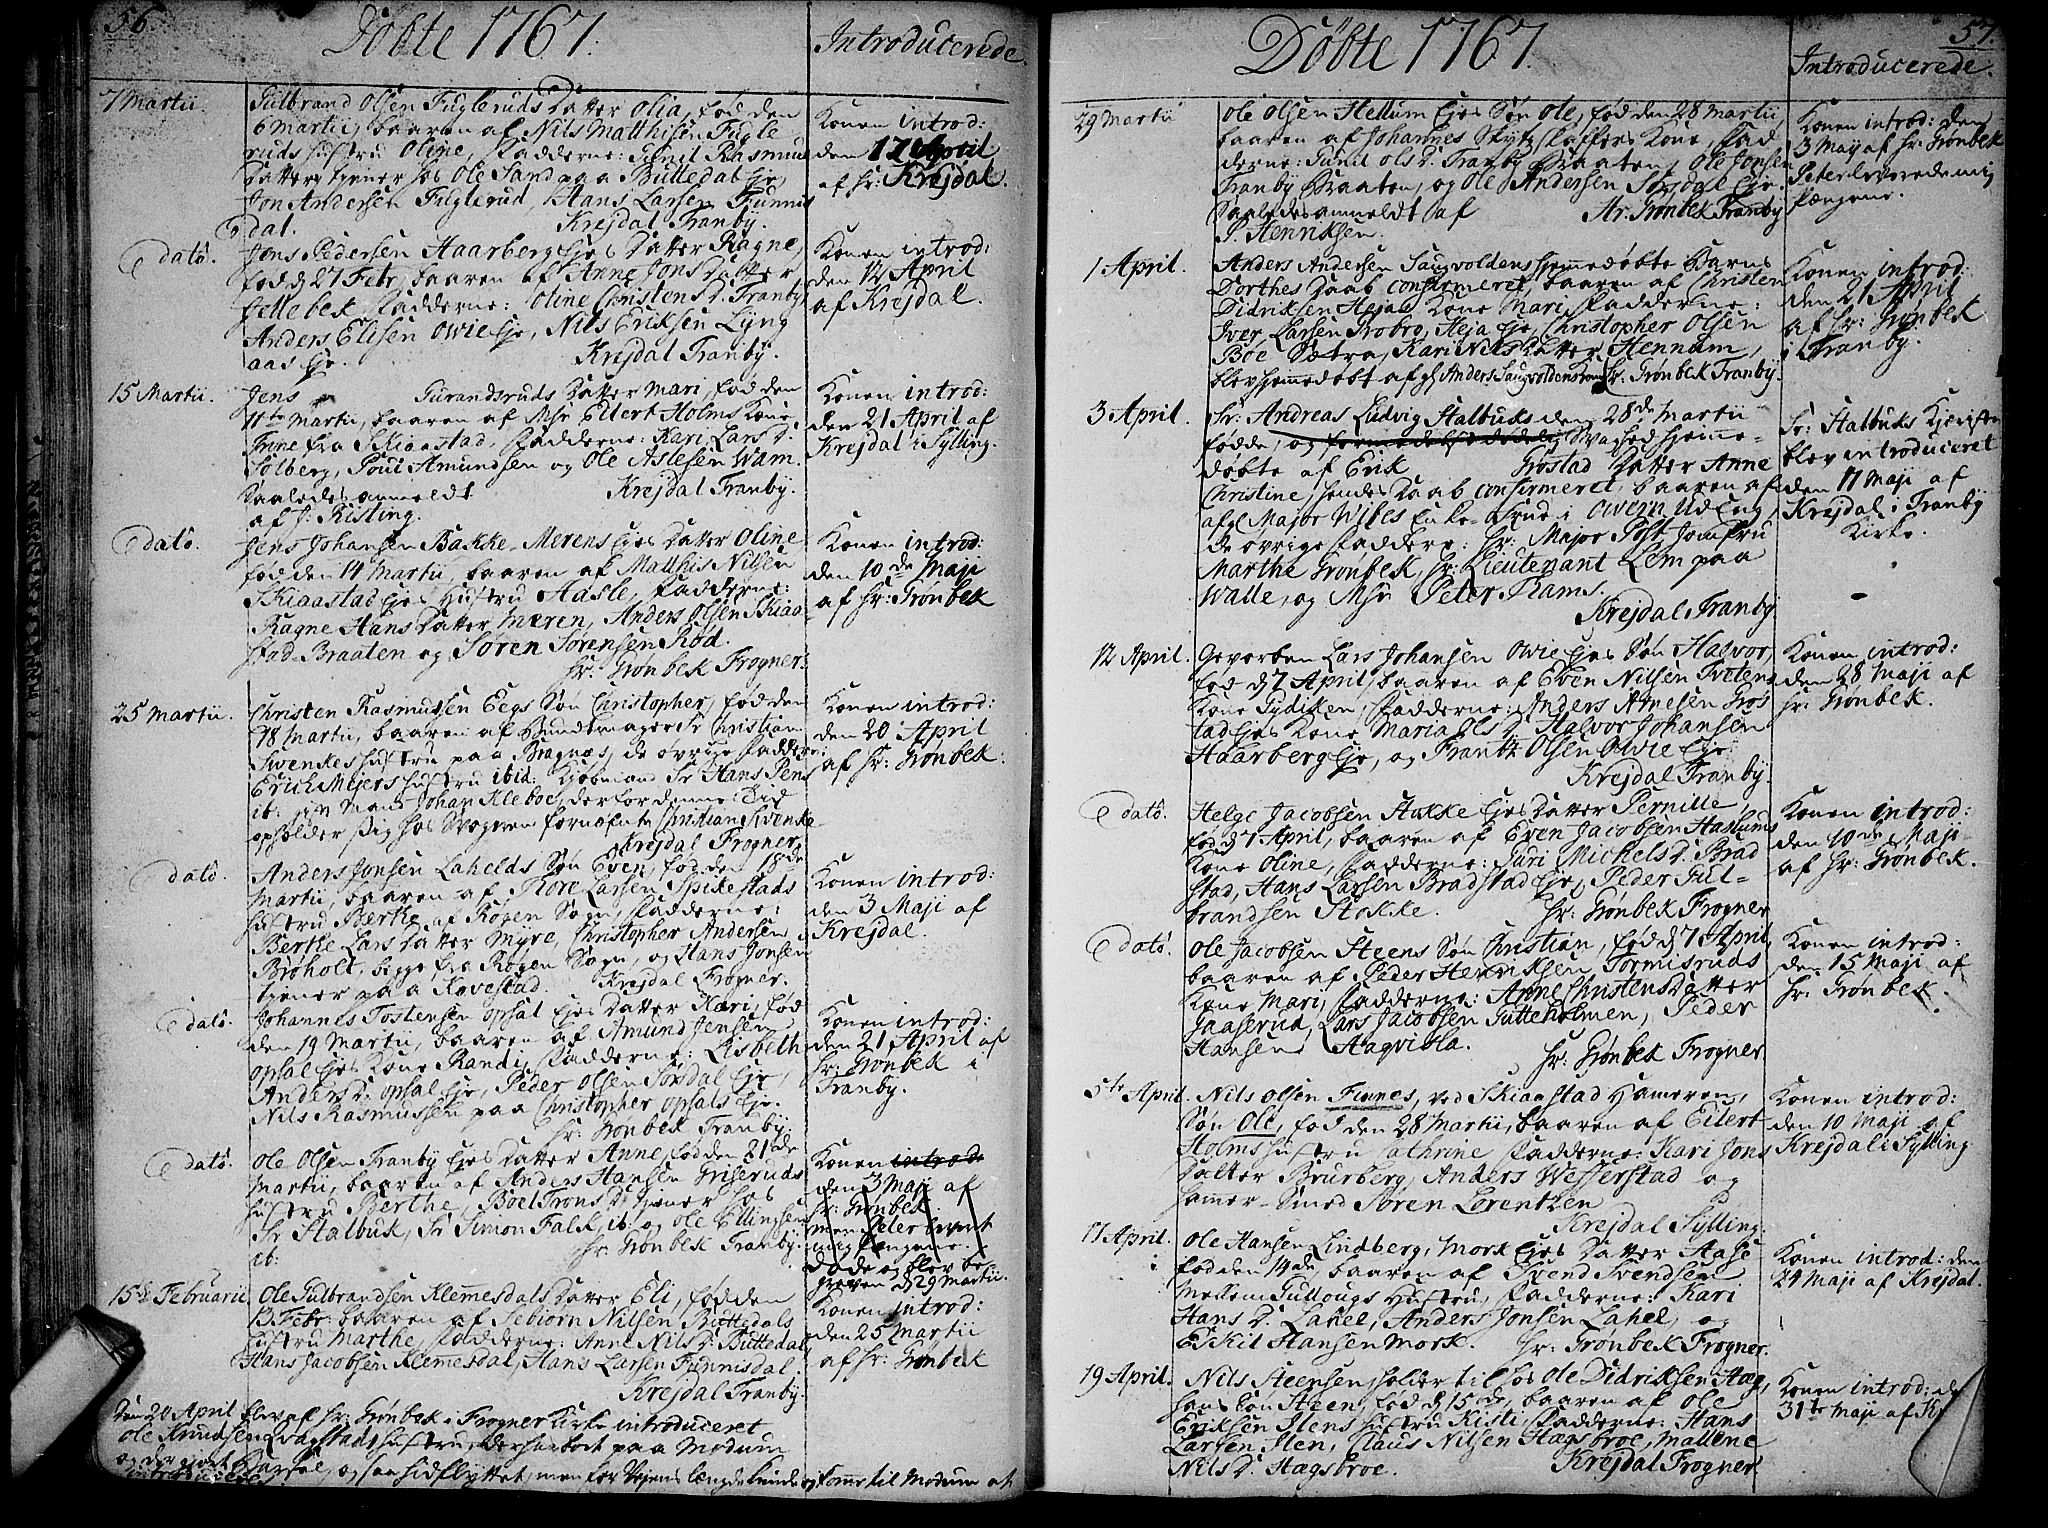 56.
Döbte 1767.
Introducerede.
7 Martii.
Gulbrand Olsen Fugleruds Datter Olia, fød den
6 Martii, baaren af Nils Matthisen Fugle
ruds Hustru Oline, Fadderne: Gunil Rasmus
Datter tjener hos Ole Sand paa Buttedal Eje,
Jon Andersen Fuglerud, Hans Larsen Funnis
dal. Krejdal Tranby.
Konen introd:
den 12 April
af Hr: Krejdal.
dato.
Jens Pedersen Haarberg Ejes Datter Ragne,
fød d 27 Febr, baaren af Anne Jons Datter
Jellebek, Fadderne: Oline Christens D. Tranby
Anders Elisen Owie Eje, Nils Eriksen Lyng
aas Eje. Krejdal Tranby.
Konen introd:
den 12 April
af Krejdal.
15 Martii.
Jens Gurandsruds Datter Mari, fød den
11te Martii, baaren af Msr Eilert Holms Kone
Trine fra Skiaastad, Fadderne: Kari Lars D.
Solberg, Poul Amundsen og Ole Aslesen Wam.
Saaledes anmeldt Krejdal Tranby.
af J: Risting.
Konen introd:
den 21 April af
Krejdal i Sylling.
dato.
Jens Johansen Bakke-Merens Ejes Datter Oline
fød den 14 Martii, baaren af Matthis Nilsen
Skiaastad Ejes Hustru Aasle, Fadderne:
Ragne Hans Datter Meren, Anders Olsen Skiaa-
stad Braaten og Søren Sørensen Rød.
Hr: Grønbek Frogner.
Konen introd:
den 10de Maji
af Hr: Grønbek
25 Martii.
Christen Rasmussen Eegs Søn Christopher, fød den
18 Martii, baaren af Bundtmager Sr Christian
Swenkes Hustru paa Bragnæs, de øvrige Faddere:
Erich Mejers Hustru ibid: Kjøbmand Sr Hans Jens
ib: Johan Kleboe, der for denne Tid
opholder sig hos Swogeren fornæfnte Christian Svenke
Krejdal Frogner.
Konen introd:
den 20 April
af Hr: Grønbek.
dato.
Anders Jonsen Lahelds Søn Even, fød den 18de
Martii, baaren af Tore Larsen Spikestads
Hustru Berthe af Røgen Sogn, Fadderne:
Berthe Lars Datter Myre, Christopher Andersen
Brøholt, begge fra Røgen Sogn, og Hans Jonsen
tjener paa Kovestad. Krejdal Frogner.
Konen introd:
den 3 Maji af
Krejdal.
dato.
Johannes Tostensen Opsal Ejes Datter Kari, fød
den 19 Martii, baaren af Amund Jensen
Opsal Ejes Kone Randi, Fadderne: Lisbeth
Anders D. Opsal Eje, Peder Olsen Sørsdal Eje,
Nils Rasmussen paa Christopher Opsals Eje.
Hr: Grønbek Tranby.
Konen introd:
den 21 April af
Hr: Grønbek i
Tranby.
dato.
Ole Olsen Tranby Ejes Datter Anne, fød den 21de
Martii, baaren af Anders Hansen Griseruds
Hustru Berthe, Boel Trons D. tjener hos
Sr Stalbuk, Sr Simon Falk, ib: og Ole Ellingsen
ib: Hr: Grønbek Tranby.
Konen introd:
den 3 Maji af
Hr: Grønbek
men Peter levert
mig Pengene.
døde og blev be-
graven d 29 Martii.
15de Februarii
Ole Gulbrandsen Klemmesdals Datter Eli, fød den
13 Febr: baaren af Sebiorn Nilsen Buttedals
Hustru Marthe, Fadderne: Anne Nils D. Buttedal
Hans Jacobsen Klemesdal, Hans Larsen Fudnnisdal.
Krejdal Tranby.
Konen introd:
den 25 Martii
af Hr: Grønbek
Den 20 April blev af Hr: Grønbek i Frogner Kirke introduceret
Ole Knudsen Qvagstads Hustru, der har boet paa Modum
og der gjort Barsel, og saa hidflyttet, men for Vejens længde kunde ej komme til Modum at
57.
Döbte 1767.
Introducerede.
29 Martii
Ole Olsen Hellum Ejes Søn Ole, fød den 28 Martii,
baaren af Johannes Skytz Kaffers Kone, Fad
derne: Gunil Ols D. Tranby Braaten, Ole Jonsen
Tranby Braaten, og Ole Andersen Sørsdal Eje.
Saaledes anmeldt af Hr. Grønbek Tranby
P. Henriksen.
Konen introd: den
3 Maij af Hr: Grønbek
Peter leverede mig
Pengene.
1 April.
Anders Andersen Saugvoldens hjemmedøbte Barns
Dorthes Daab confirmeret, baaren af Christen
Didriksen Hejas Kone Mari, Fadderne:
Iver Larsen Groberg, Heja Eje, Christopher Olsen
Boe Sætra, Kari Nils Datter Hennum,
blev hjemmedøbt af gl Anders Saugvoldens Kone, Hr: Grønbek Tranby.
Konen introd:
den 21 April
af Hr: Grønbek
i Tranby.
3 April.
Sr. Andreas Ludvig Stalbuks den 28de Martii
fødde, og formedelst dødelig Svaghed hjemme-
døbte af Erik Grostad Datter Anne
Christine, hendes Daab confirmeret, baaren af
afgl Major Wibes Enke-Frue i Owern Udeng
de øvrige Faddere: Hr: Major Post, Jomfru
Marthe Grønbek, Hr: Lieutenant Lem paa
Walle, og Msr Peter Rams.
Krejdal Tranby.
Sr: Stalbuks Kjereste
blev introduceret
den 17 Maji af
Krejdal i Tranby
Kirke.
12 April.
Gevorben Lars Johansen Owie Ejes Søn Halvor,
fød d 7 April, baaren af Even Nilsen Tvetens
Kone Sydiken, Fadderne: Anders Arnesen Gros
tad Ejes Kone Maria Ols D. Halvor Johansen
Haarberg Eje, og Frantz Olsen Owie Eje:
Krejdal Tranby.
Konen introd:
den 28 Maji af
Hr: Grønbek.
dato.
Helge Jacobsen Stokke Ejes Datter Pernille,
fød d 7 April, baaren af Even Jacobsen Haslums
Kone Oline, Fadderne: Guri Michels D. Brad
stad, Hans Larsen Bradstad Eje, Peder Gul-
brandsen Stokke. Hr: Grønbek Frogner
Konen introd:
den 10de Maji
af Hr: Grønbek.
dato.
Ole Jacobsen Steens Søn Christian, fød d 7 April,
baaren af Peder Henriksen Tormisruds
Kone Mari, Fadderne: Anne Christens Datter
Gaaserud, Lars Jacobsen Gulleholmen, Peder
Hansen Aaqvisla. Hr: Grønbek Frogner.
Konen introd:
den 15 Maji af
Hr: Grønbek.
5te April.
Nils Olsen Finnes, ved Skiaastad Hameren,
Søn Ole, fød den 28 Martii, baaren af Eilert
Holms Hustru Cathrine Fadderne: Kari Jons
Datter Brurberg, Anders Wefferstad og
Hamer-Smed Søren Lorentzen
Krejdal Sylling.
Konen introd:
den 10 Maji af
Krejdal i Sylling
17 April.
Ole Hansen Lindberg, Mork Ejes Datter Aase
fød den 14de, baaren af Svend Svendsen
Mellem Gullougs Hustru, Fadderne: Kari
Hans D. Lahel, Anders Jonsen Lahel, og
Eskil Hansen Mork. Hr: Grønbek Frogner.
Konen introd: den
24 Maji af Krejdal.
19 April.
Nils Steensen holder til hos Ole Didriksen Hæg,
hans Søn Steen, fød d 15de, baaren af Ole
Eriksen Stens Hustru Kisti, Fadderne: Hans
Larsen Sten, Claus Nilsen Hægsbroe, Mallene
Nils D. Hægsbroe. Krejdal Frogner
Konen introd: d
31te Maji af Kr